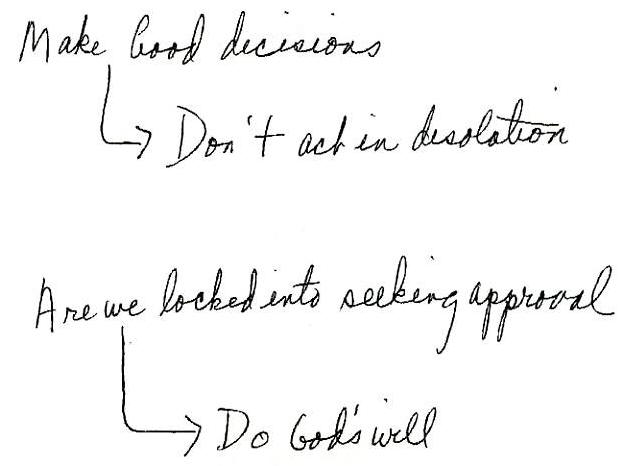 Make Good decisions
Don't act in desolation
Are we locked into seeking approval
Do God's will